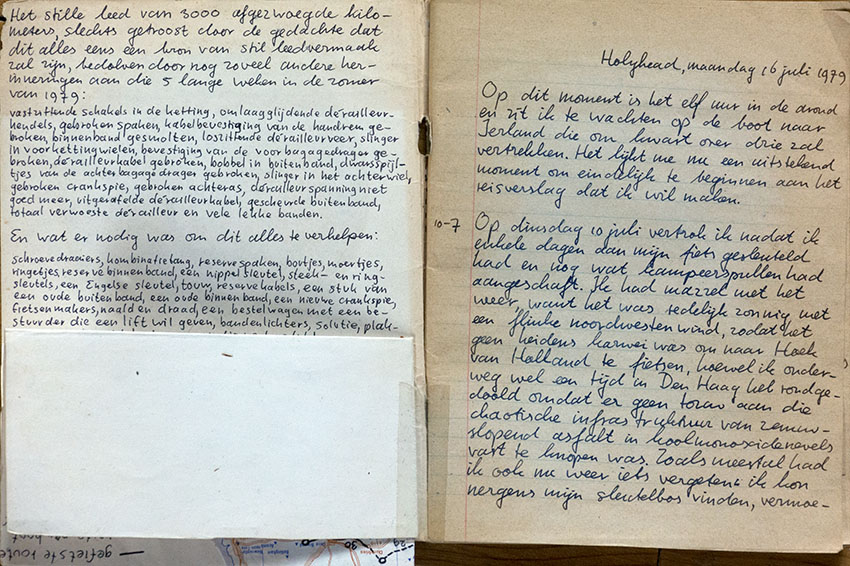 Het stille leed van 3000 afgezwoegde kilo-
meters, slechts getroost door de gedachte dat
dit alles eens een bron van stil leedvermaak
zal zijn, bedolven door nog zoveel andere her-
inneringen aan die 5 lange weken in de zomer
van 1979:
vastzittende schakels in de ketting, omlaagglijdende derailleur-
hendels, gebroken spaken, kabelbevestiging van de handrem ge-
broken, binnenband gesmolten, loszittende derailleurveer, slinger
in voorkettingwielen, bevestiging van de voorbagagedrager ge-
broken, derailleurkabel gebroken, bobbel in buitenband, dwarsspijl-
tjes van de achterbagagedrager gebroken, slinger in het achterwiel,
gebroken crankspie, gebroken achteras, derailleurspanning niet
goed meer, uitgerafelde derailleurkabel, gescheurde buitenband,
totaal verwoeste derailleur en vele lekke banden.
En wat er nodig was om dit alles te verhelpen:
schroevedraaiers, kombinatietang, reservespaken, boutjes, moertjes,
ringetjes, reserve binnenband, een nippelsleutel, steek- en ring-
sleutels, een Engelse sleutel, touw, reservekabels, een stuk van
een oude buitenband, een oude binnenband, een nieuwe crankspie,
fietsenmakers, naald en draad, een bestelwagen met een be-
stuurder die een lift wil geven, bandenlichters, solutie, plak-
gefietste route
30
29
Holyhead, maandag 16 juli 1979
Op dit moment is het elf uur in de avond
en zit ik te wachten op de boot naar
Ierland die om kwart over drie zal
vertrekken. Het lijkt me nu een uitstekend
moment om eindelijk te beginnen aan het
reisverslag dat ik wil maken.
10-7 Op dinsdag 10 juli vertrok ik nadat ik
enkele dagen aan mijn fiets gesleuteld
had en nog wat kampeerspullen had
aangeschaft. Ik had mazzel met het
weer, want het was redelijk zonnig met
een flinke noordwesten wind, zodat het
geen heidens karwei was om naar Hoek
van Holland te fietsen, hoewel ik onder-
weg wel een tijd in Den Haag heb rondge-
doold omdat er geen touw aan die
chaotische infrastruktuur van zenuw-
slopend asfalt in koolmonoxidenevels
vast te knopen was. Zoals meestal had
ik ook nu weer iets vergeten: ik kon
nergens mijn sleutelbos vinden, vermoe-